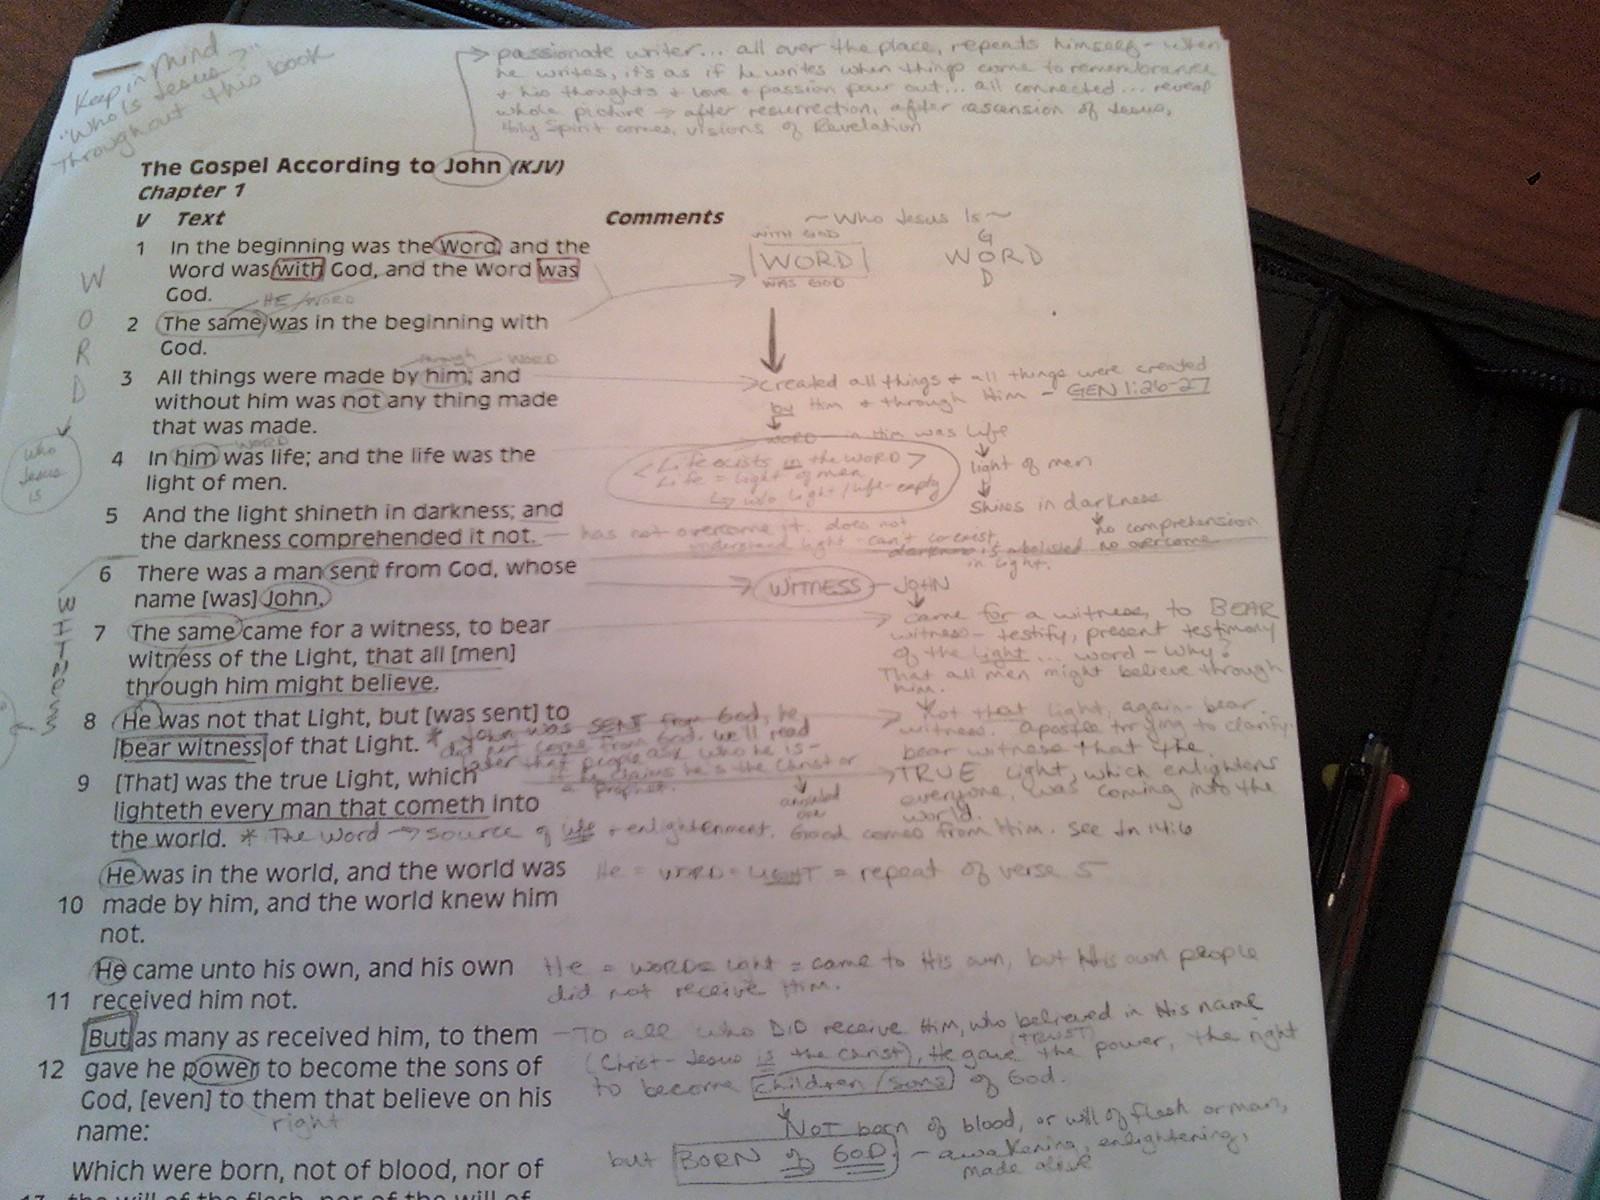 Keep in mind
"Who is Jesus?"
Throughout this book
passionate writer... all over the place, repeats himself - when
he writes, it's as if he writes when things come to remembrance
+ his thoughts + love + passion pour out... all connected... reveal
whole picture → after resurrection, after ascension of Jesus,
Holy Spirit comes, visions of Revelation
The Gospel According to John (KJV)
Chapter 1
V Text Comments
~Who Jesus Is~
1 In the beginning was the Word, and the
Word was with God, and the Word was
God.
WITH GOD
WORD
WAS GOD
G
WORD
D
WORD
who
Jesus
is
HE/WORD
2 The same was in the beginning with
God.
through WORD
3 All things were made by him; and
without him was not any thing made
that was made.
created all things + all things were created
by Him + through Him - GEN 1:26-27
WORD
4 In him was life; and the life was the
light of men.
WORD in Him was life
<Life exists in the WORD>
Life = light of men
↳ w/o light/life - empty
light of men
shines in darkness
no comprehension
no overcome
5 And the light shineth in darkness; and
the darkness comprehended it not.
has not overcome it. does not
understand light - can't co exist,
darkness is abolished
in light.
6 There was a man sent from God, whose
name [was] John.
WITNESS - JOHN
WITNESS
7 The same came for a witness, to bear
witness of the Light, that all [men]
through him might believe.
came for a witness, to BEAR
witness - testify, present testimony
of the light... word - Why?
That all men might believe through
him.
8 He was not that Light, but [was sent] to
bear witness of that Light.
* John was SENT from God, he
did not come from God. we'll read
later that people ask who he is -
if he claims he's the Christ or
a prophet.
anointed
one
Not that light, again - bear
witness. apostle trying to clarify.
bear witness that the
9 [That] was the true Light, which
lighteth every man that cometh into
the world.
TRUE light, which enlightens
everyone, was coming into the
world.
* The Word → source of life + enlightenment. Good comes from Him. See Jn 14:6
He was in the world, and the world was
10 made by him, and the world knew him
not.
He = WORD = LIGHT = repeat of verse 5
He came unto his own, and his own
11 received him not.
He = WORD = Light = came to His own, but His own people
did not receive Him.
But as many as received him, to them
12 gave he power to become the sons of
God, [even] to them that believe on his
name:
right
TO all who DID receive Him, who believed in His name
(TRUST)
(Christ - Jesus is the Christ), He gave the power, the right
to become children/sons of God.
NOT born of blood, or will of flesh or man,
but BORN of GOD - awakening, enlightening,
made alive
Which were born, not of blood, nor of
13 the will of the flesh, nor of the will of